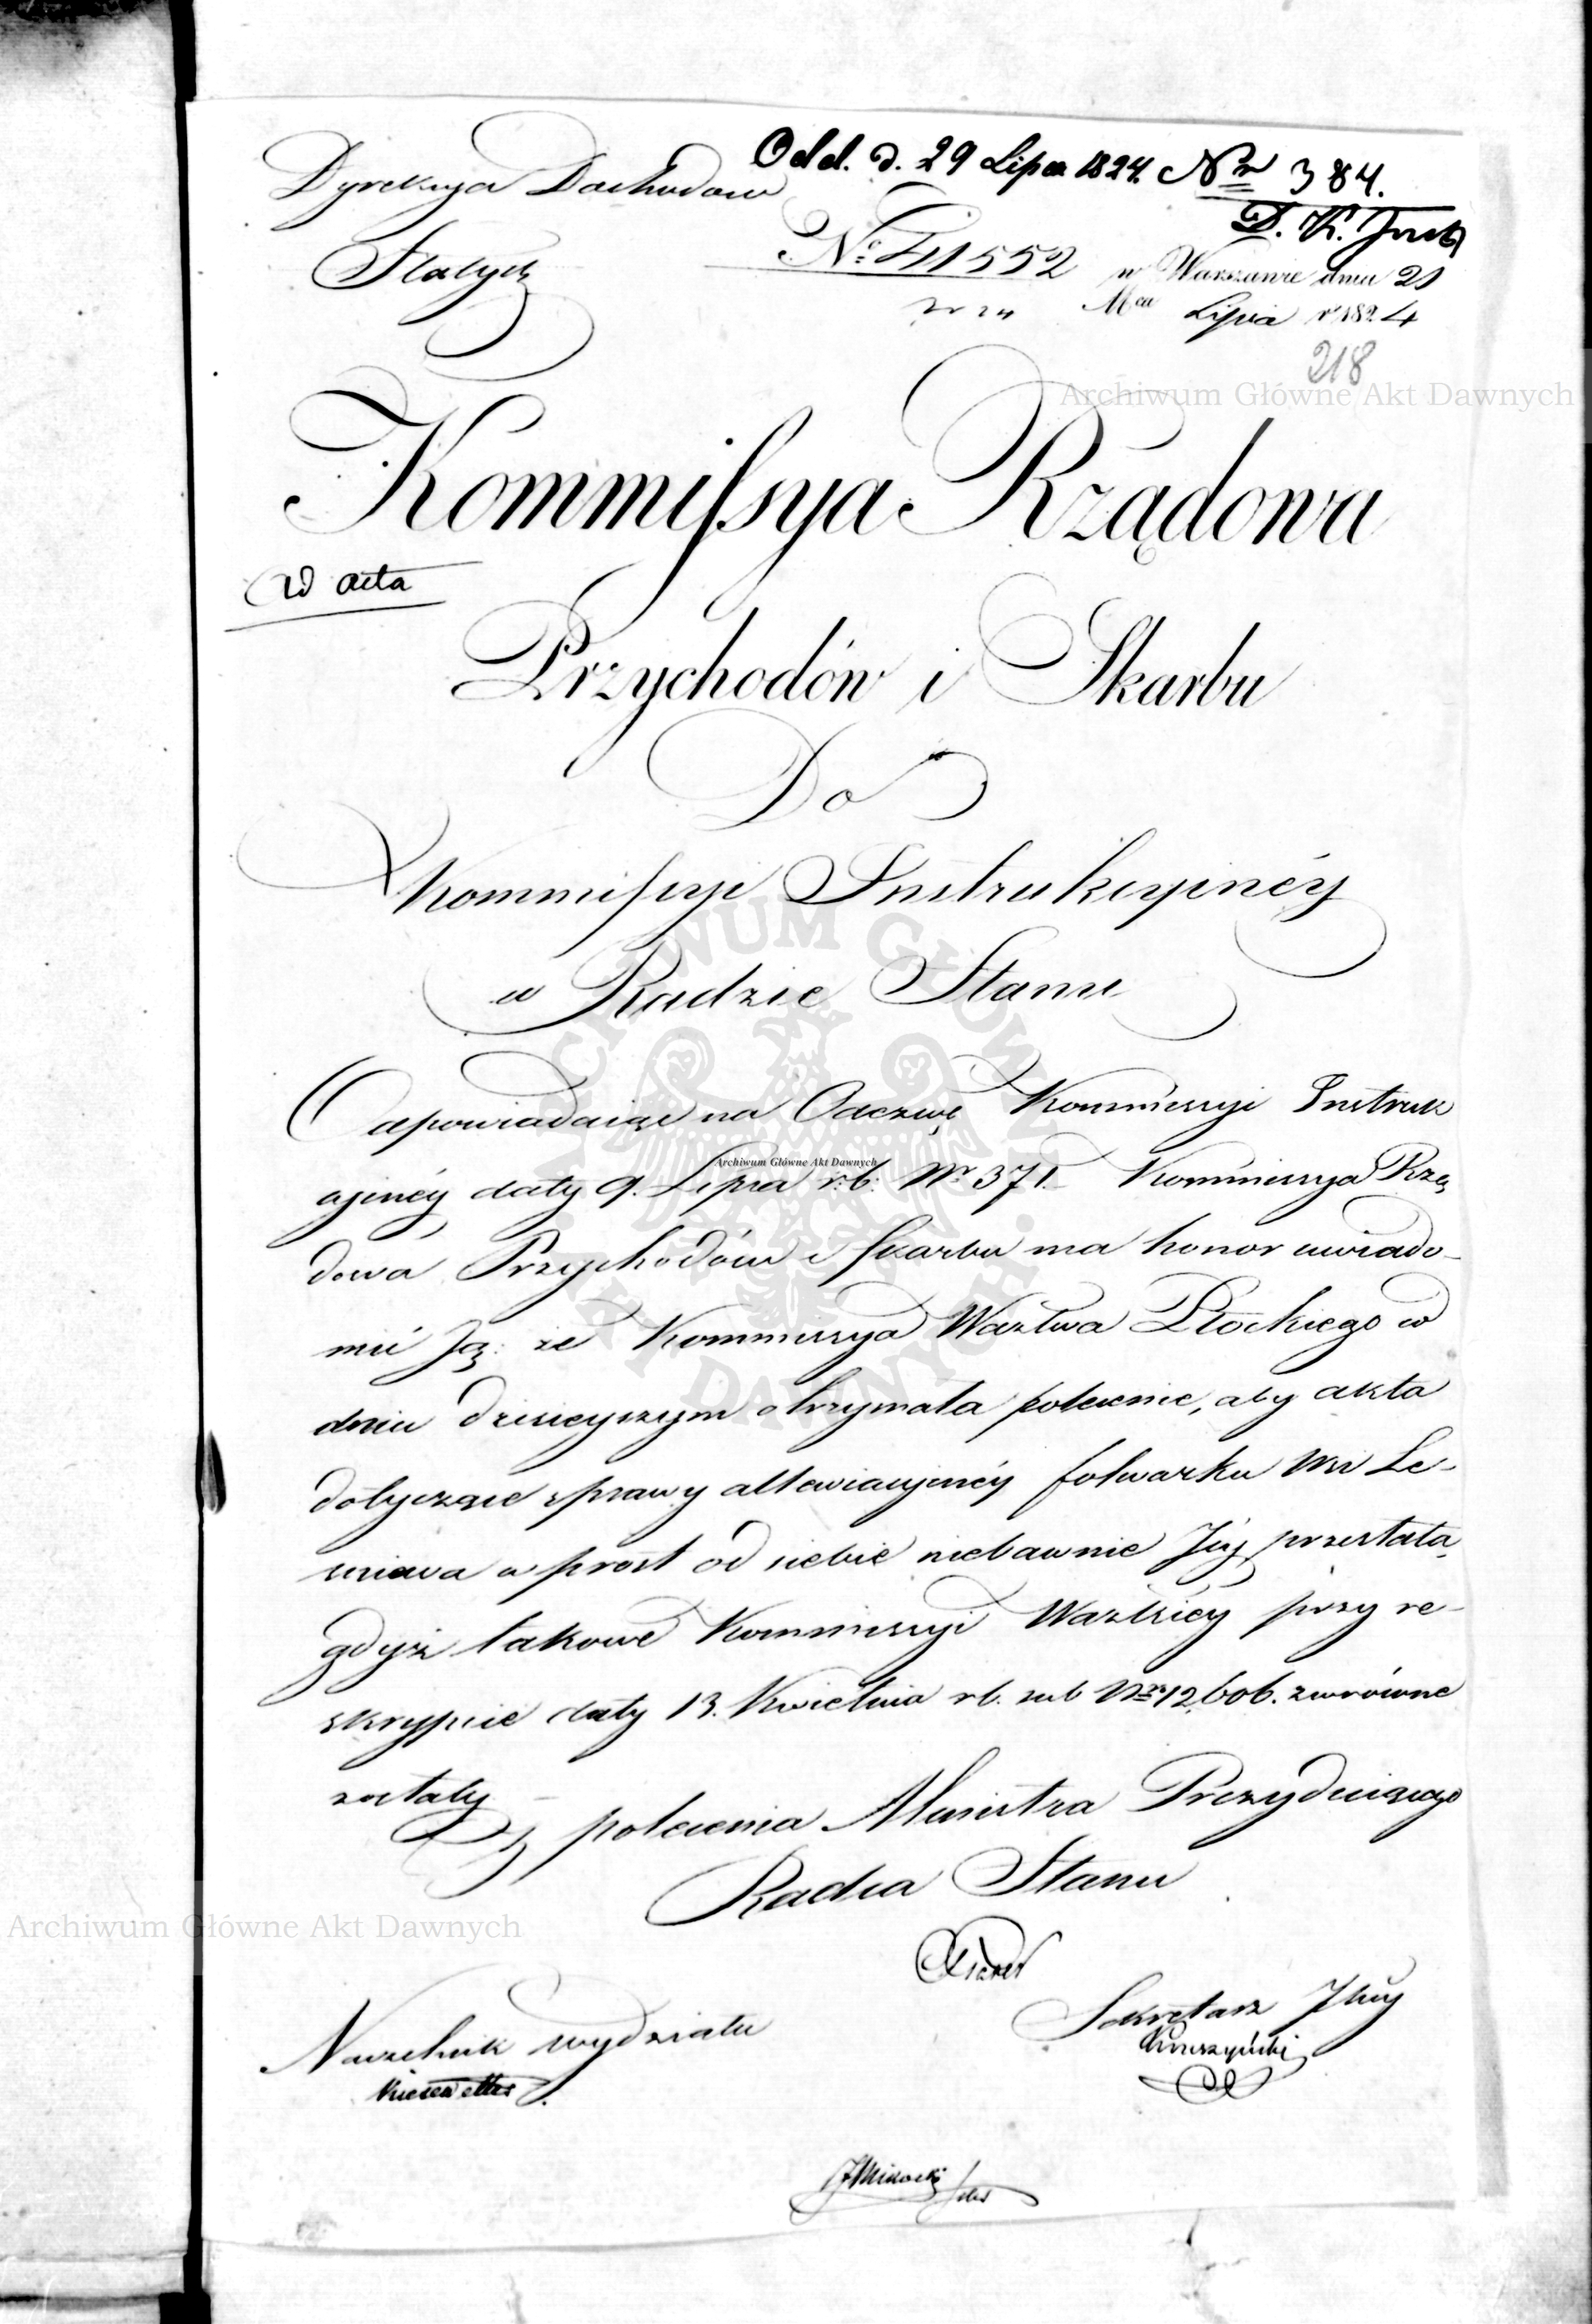 Odd. d. 29 Lipca 1824. Nr 384.
Dyrekcya Dochodow
Stałych
No 41552
w Warszawie dnia 21
Mca Lipca r 1824
218
Archiwum Główne Akt Dawnych
Kommissya Rządowa
W acta
Przychodów i Skarbu
Do
Kommissyi Instrukcyinéy
w Radzie Stanu
Odpowiadaiąc na Odezwę Kommissyi Instruk
cyinéy daty 9. Lipca r: b: Nr 371. Kommissya Rzą
dowa Przychodów i Skarbu ma honor uwiado-
mić Ją: że Kommissya Wdztwa Płockiego w
dniu dzisieyszym otrzymała polecenie, aby akta
dotyczące sprawy allewiacyinéy folwarku Wsi Le-
w prost od siebie niebawnie Jéy przesłała,
gdyż takowe Kommissyi Wdzkiéy przy re-
skrypcie daty 13. Kwietnia r b. sub Nro 12,606. zwrócone
zostały
Z polecenia Ministra Prezyduiącego
Radca Stanu
Naczelnik wydziału
Kiesewetter
Sekretarz Jlny
Kruszyński
Archiwum Główne Akt Dawnych
Archiwum Główne Akt Dawnych
ARCHIWUM GŁÓWNE AKT DAWNYCH